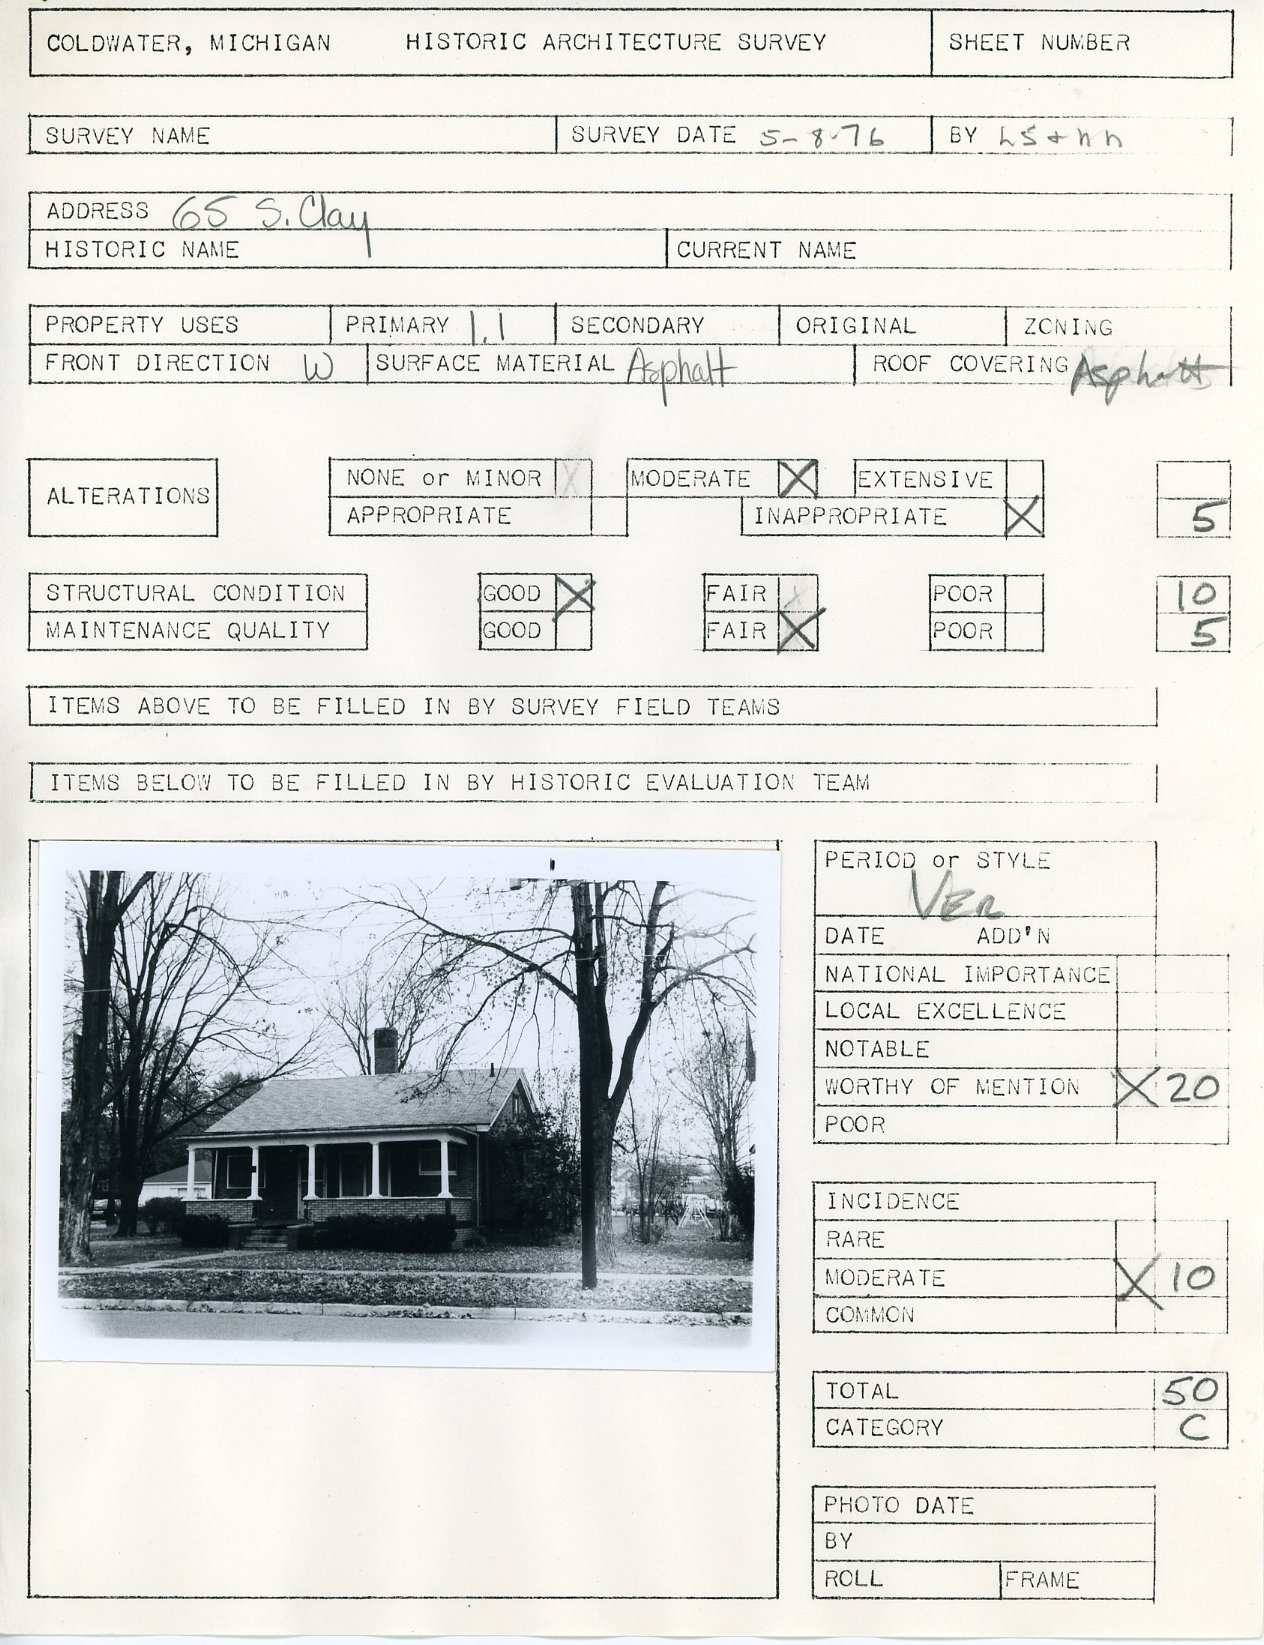 COLDWATER, MICHIGAN HISTORIC ARCHITECTURE SURVEY SHEET NUMBER
SURVEY NAME SURVEY DATE 5-8-76 BY LS + nn
ADDRESS 65 S. Clay
HISTORIC NAME CURRENT NAME
PROPERTY USES PRIMARY 1.1 SECONDARY ORIGINAL ZONING
FRONT DIRECTION W SURFACE MATERIAL Asphalt ROOF COVERING Asphalt
ALTERATIONS NONE or MINOR X MODERATE X EXTENSIVE
APPROPRIATE INAPPROPRIATE X 5
STRUCTURAL CONDITION GOOD X FAIR X POOR 10
MAINTENANCE QUALITY GOOD FAIR X POOR 5
ITEMS ABOVE TO BE FILLED IN BY SURVEY FIELD TEAMS
ITEMS BELOW TO BE FILLED IN BY HISTORIC EVALUATION TEAM
PERIOD or STYLE
VER
DATE ADD'N
NATIONAL IMPORTANCE
LOCAL EXCELLENCE
NOTABLE
WORTHY OF MENTION X 20
POOR
INCIDENCE
RARE
MODERATE X 10
COMMON
TOTAL 50
CATEGORY C
PHOTO DATE
BY
ROLL FRAME